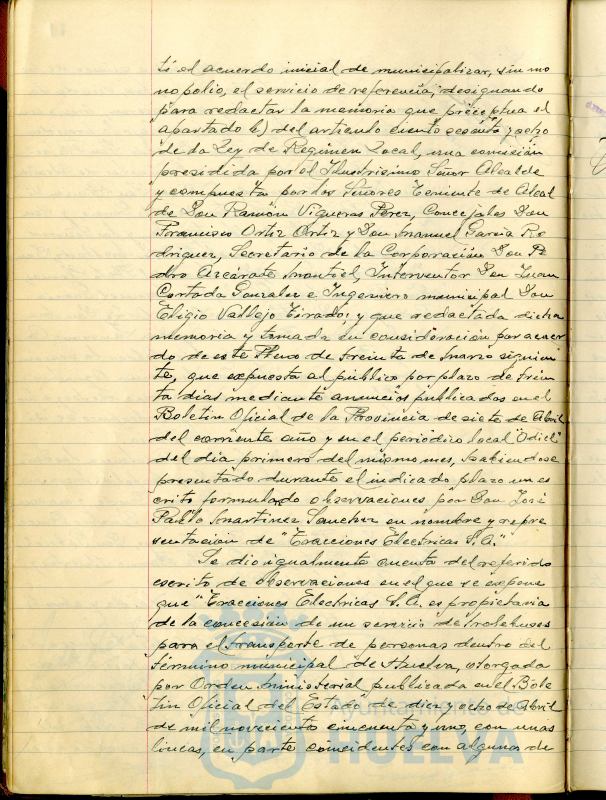 tó el acuerdo inicial de municipalizar, sin mo
nopolio, el servicio de referencia, designando
para redactar la memoria que preceptua el
apartado b) del artículo ciento sesenta y ocho
de la Ley de Regimen Local, una comisión
presidida por el Ilustrisimo Señor Alcalde
y compuesta por los Señores Teniente de Alcal
de Don Ramón Vigueras Perez, Concejales Don
Francisco Ortiz Ortiz y Don Manuel Garcia Ro
driguez, Secretario de la Corporación Don Pe
dro Azcárate Mantiel, Interventor Don Juan
Cortada Gonzalez e Ingeniero municipal Don
Eligio Vallejo Tirado; y que redactada dicha
memoria y tomada en consideración por acuer
do de este Pleno de treinta de marzo siguien
te, que expuesta al público por plazo de trein
ta dias mediante anuncios publicados en el
Boletin Oficial de la Provincia de siete de Abril
del corriente año y en el periódico local "Odiel"
del dia primero del mismo mes, habiendose
presentado durante el indicado plazo un es
crito formulado observaciones por Don José
Pablo Martinez Sanchez en nombre y repre
sentación de "Tracciones Electricas S.A."
Se dio igualmente cuenta del referido
escrito de observaciones en el que se expone
que "Tracciones Electricas S.A. es propietaria
de la concesión de un servicio de trolebuses
para el transporte de personas dentro del
término municipal de Huelva, otorgada
por Orden Ministerial publicada en el Bole
tin Oficial del Estado de diez y ocho de Abril
de mil noveciento cincuenta y uno, con unas
lineas, en parte coincidentes con algunas de
Ayuntamiento de
HUELVA